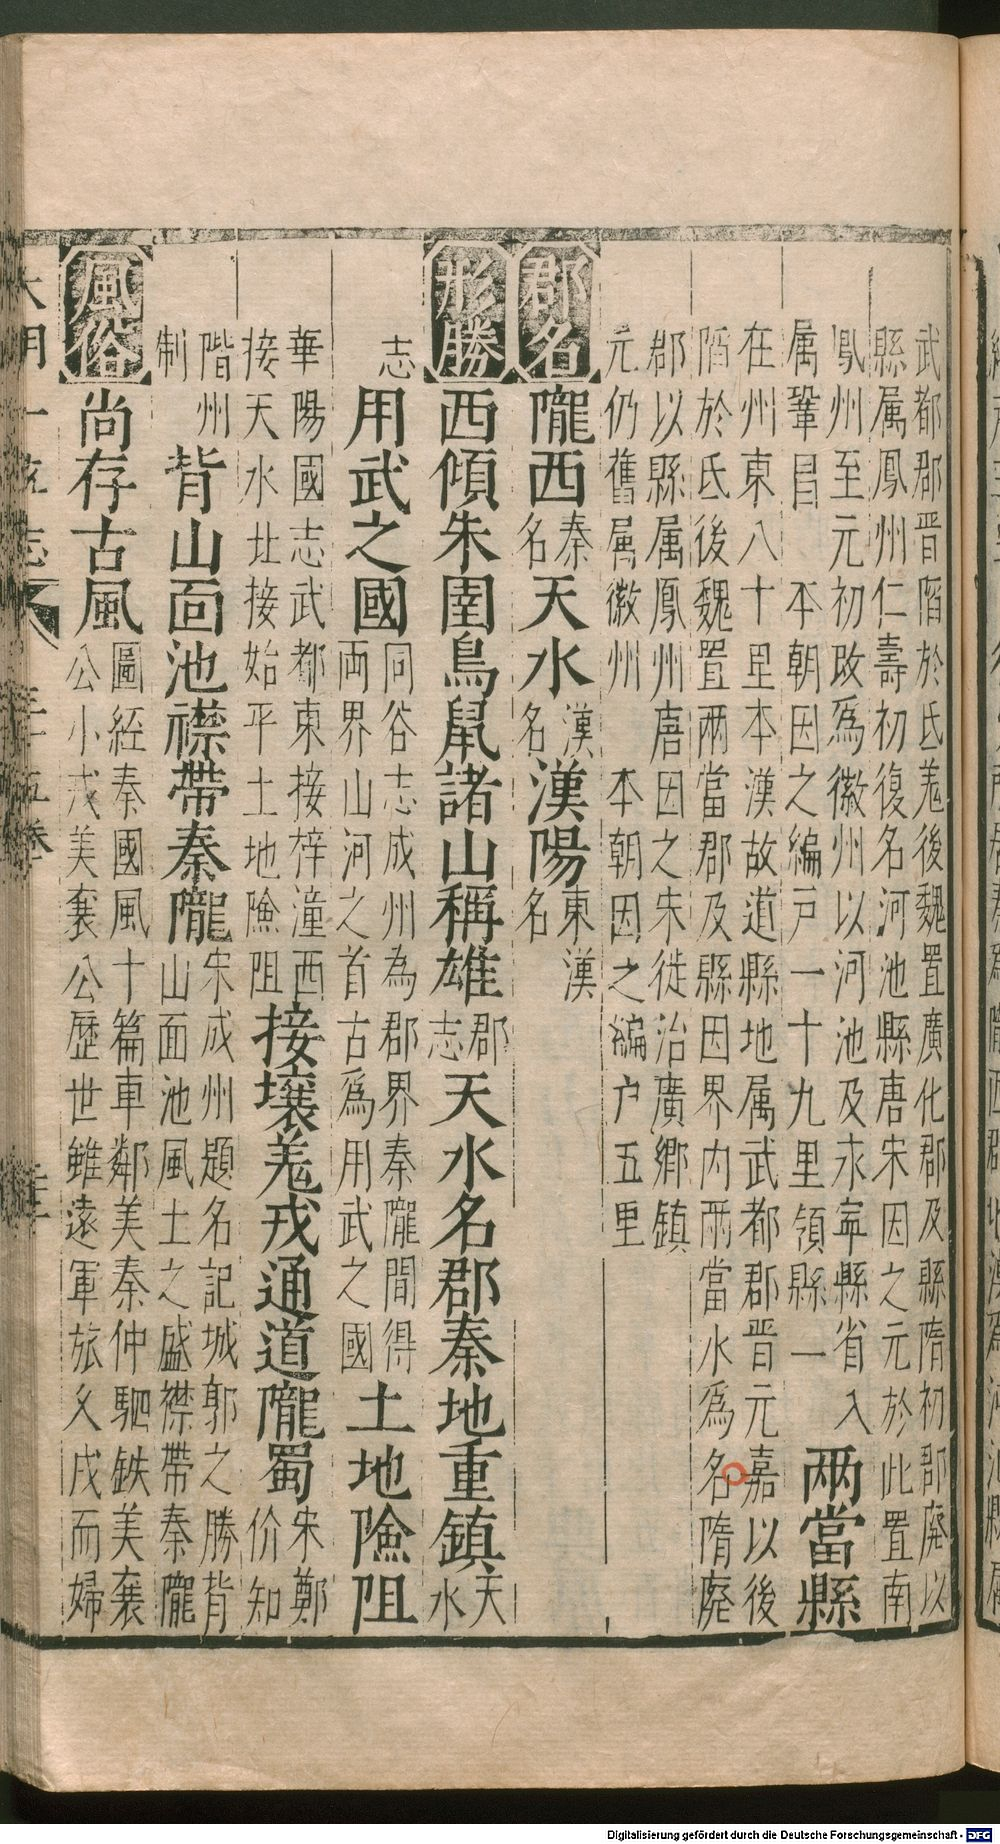 武都郡晋陷於氐羗後魏置廣化郡及縣隋初郡廢以
縣属鳳州仁壽初復名河池縣唐宋因之元於此置南
鳳州至元初改爲徽州以河池及永寧縣省入
两當縣
属鞏昌 本朝因之編戸一十九里領縣一
在州東八十里本漢故道縣地属武都郡晋元嘉以後
陷於氐後魏置兩當郡及縣因界内兩當水爲名隋廢
郡以縣属鳳州唐因之宋徙治廣鄉鎮
元仍舊属徽州 本朝因之編户五里
郡名
隴西秦名天水漢名漢陽東漢名
形勝
西傾朱圉鳥鼠諸山稱雄郡志天水名郡秦地重鎮天水
志用武之國同谷志成州為郡界秦隴間得两界山河之首古爲用武之國土地險阻
華陽國志武都東接梓潼西接天水北接始平土地險阻接壤羗戎通道隴蜀宋鄭价知
階州制背山面池襟帶秦隴宋成州題名記城郭之勝背山面池風土之盛襟帶秦隴
風俗
尚存古風圖經秦國風十篇車鄰美秦仲駟鉄美襄公小戎美襄公歷世雖遠軍旅久戍而婦
大明一統志
三十五卷
Digitalisierung gefördert durch die Deutsche Forschungsgemeinschaft - DFG